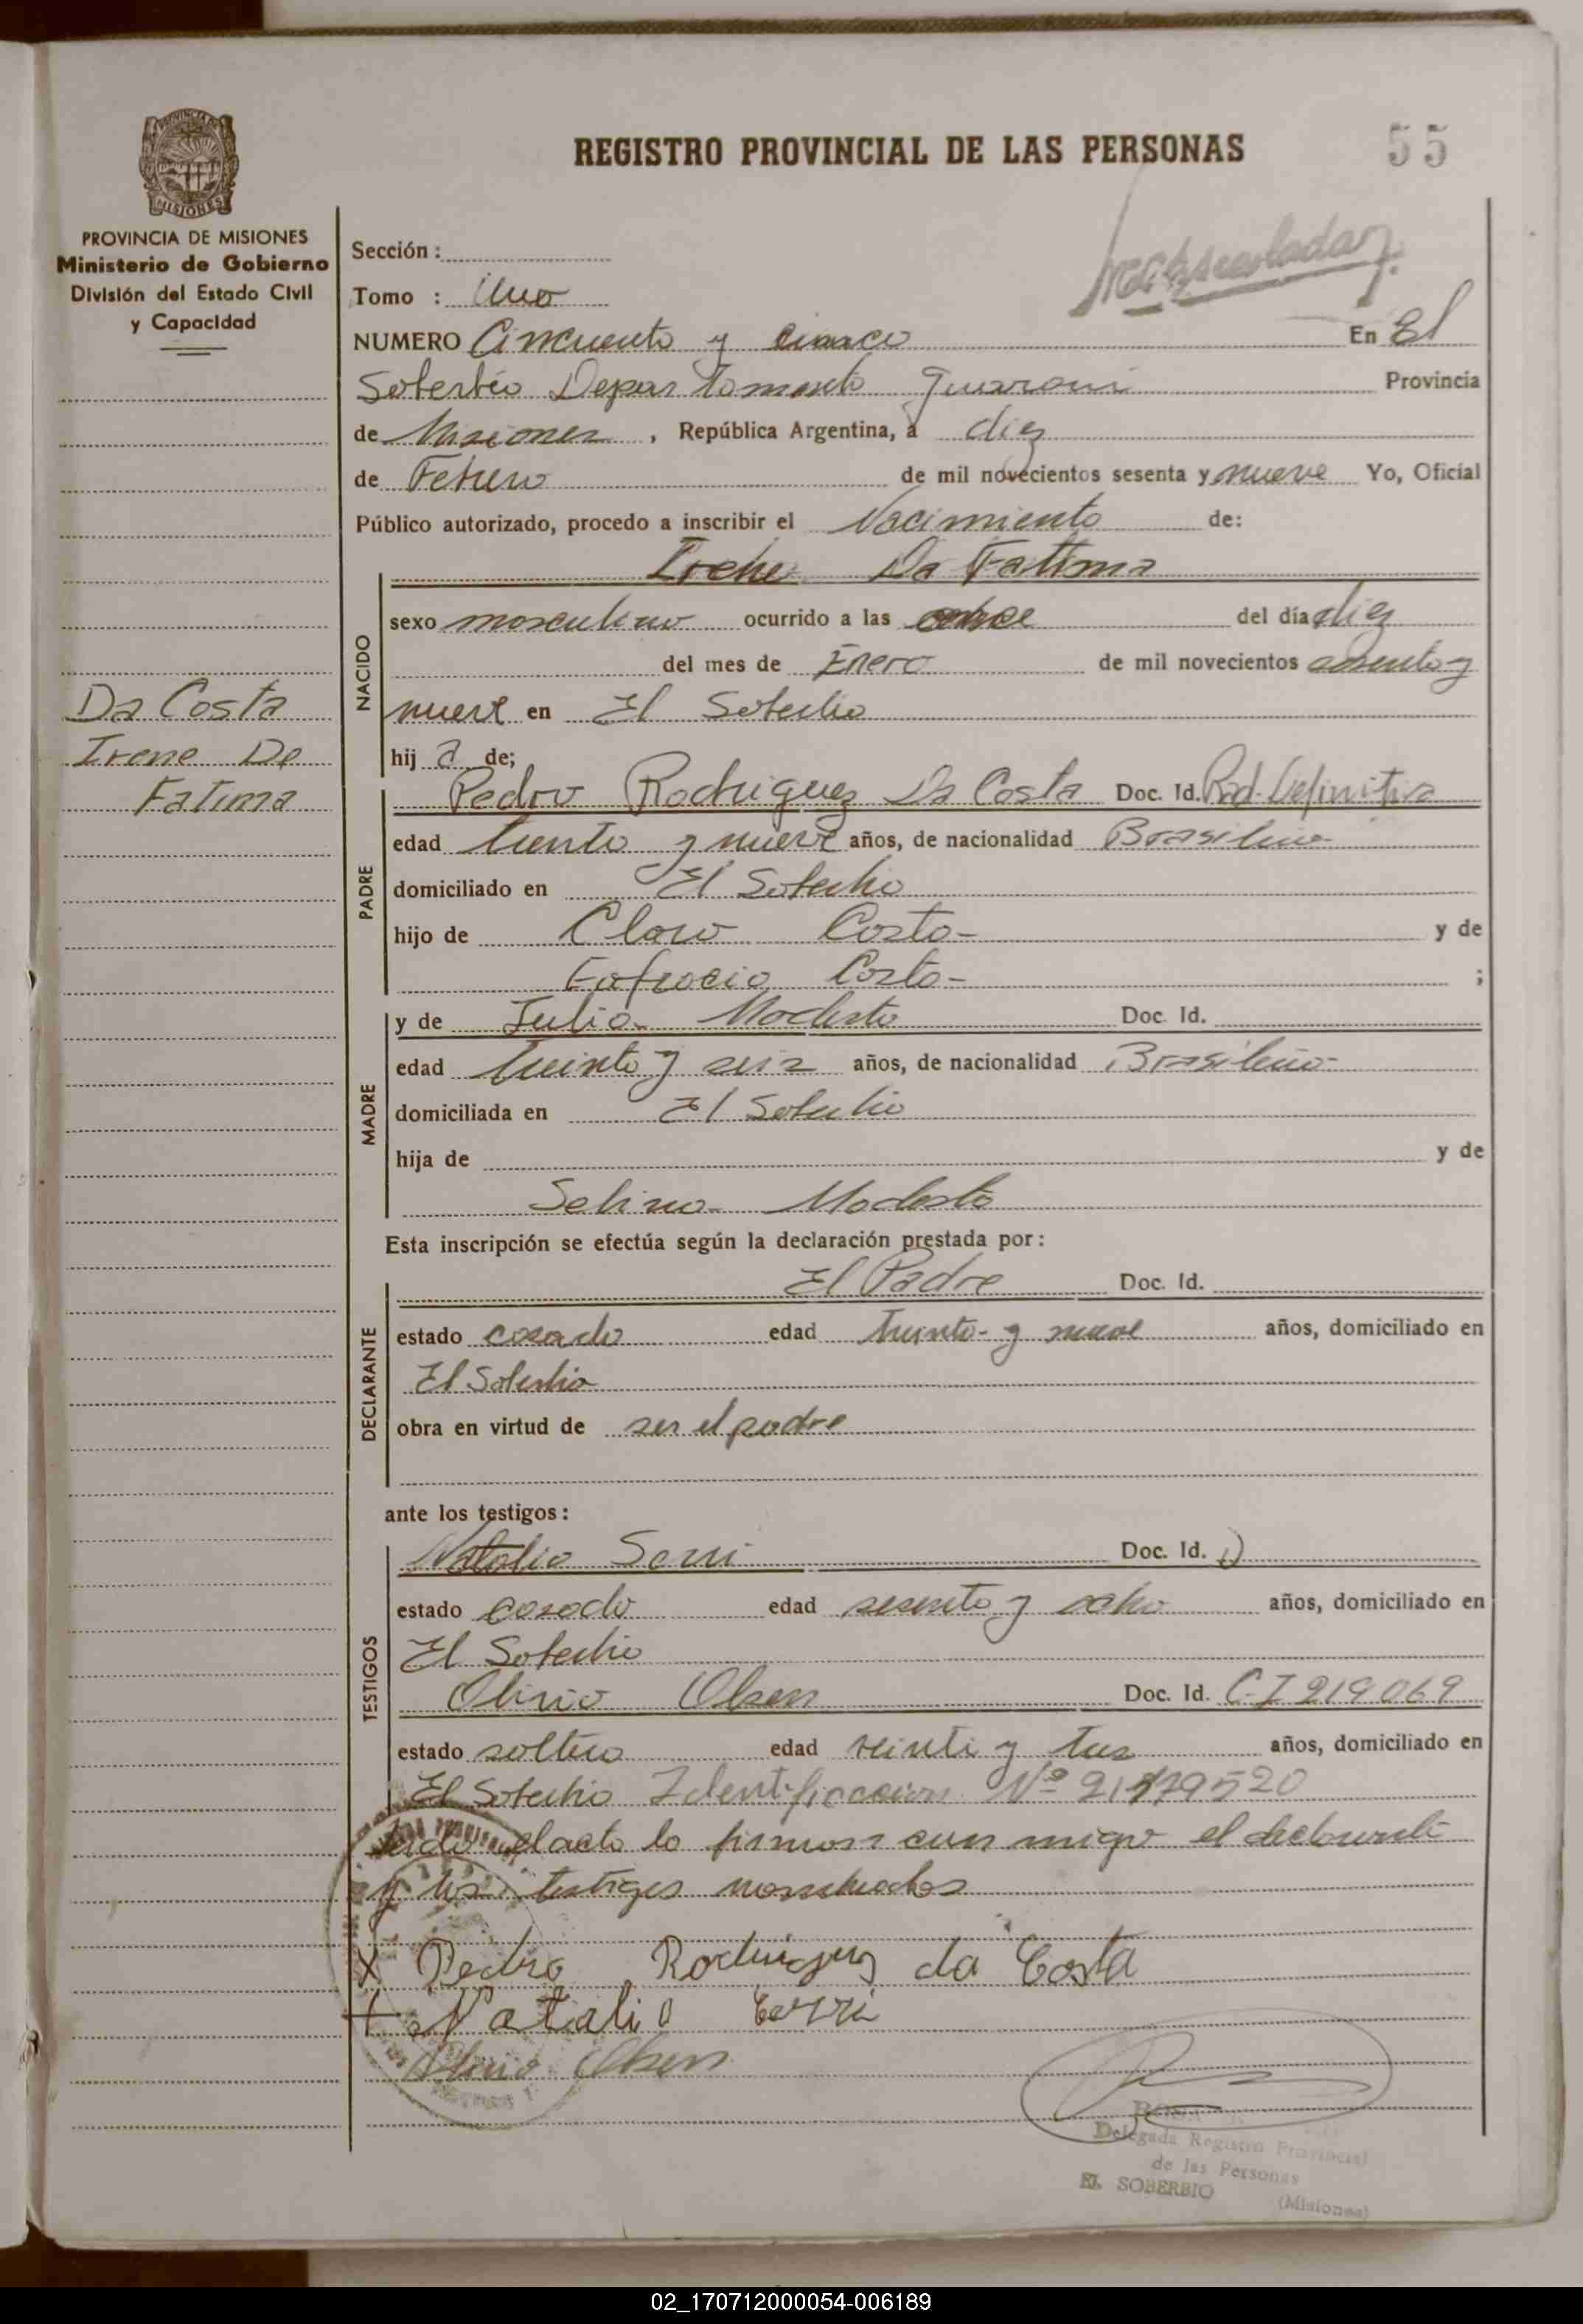 PROVINCIA DE MISIONES
MISIONES
PROVINCIA DE MISIONES
Ministerio de Gobierno
División del Estado Civil
y Capacidad
REGISTRO PROVINCIAL DE LAS PERSONAS
55
Sección :
Tomo : Uno
NUMERO Cincuenta y cinco En El
Soberbio Departamento Guarani Provincia
de Misiones , República Argentina, a diez
de Febrero de mil novecientos sesenta y nueve Yo, Oficial
Público autorizado, procedo a inscribir el Nacimiento de:
Irene Da Fatima
NACIDO
sexo masculino ocurrido a las del día diez
del mes de Enero de mil novecientos sesenta y
nueve en El Soberbio
hij a de;
Da Costa
Irene De
Fatima
PADRE
Pedro Rodriguez Da Costa Doc. Id. Rad. Definitiva
edad treinta y nueve años, de nacionalidad Brasileña
domiciliado en El Soberbio
hijo de Claro Costa- y de
Eofrocia Costa- ;
MADRE
y de Julia Modesto Doc. Id.
edad treinta y seis años, de nacionalidad Brasileña-
domiciliada en El Soberbio
hija de y de
Selina Modesto
Esta inscripción se efectúa según la declaración prestada por :
DECLARANTE
El Padre Doc. Id.
estado casado edad treinta- y nueve años, domiciliado en
El Soberbio
obra en virtud de ser el padre
ante los testigos :
TESTIGOS
Natalio Serri Doc. Id.
estado casado edad sesenta y ocho años, domiciliado en
El Soberbio
Olinio Olsen Doc. Id. C.I 219069
estado soltero edad veinti y tres años, domiciliado en
El Soberbio Identificacion Nº 21379520
Leido el acto lo firman con migo el declarante
y los testigos nombrados
X Pedro Rodrigues da Costa
+ Natalio Cerri
Olinio Olsen
Delegada Registro Provincial
de las Personas
EL SOBERBIO (Misiones)
02_170712000054-006189